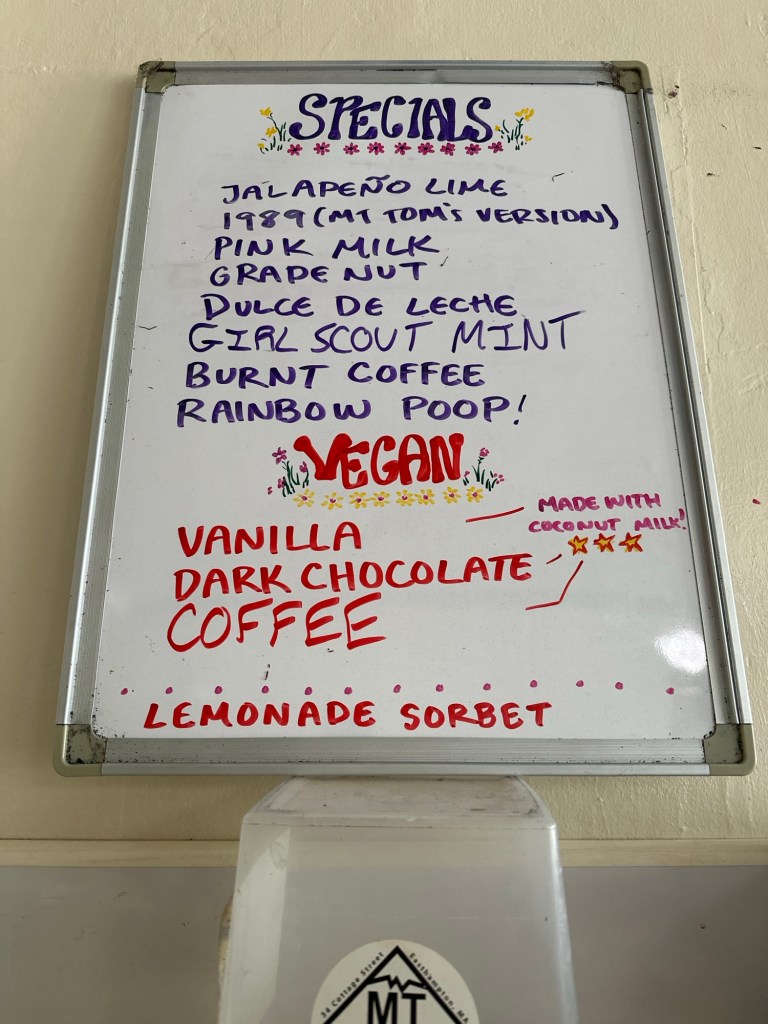 SPECIALS
JALAPEÑO LIME
1989 (MT TOM'S VERSION)
PINK MILK
GRAPE NUT
DULCE DE LECHE
GIRL SCOUT MINT
BURNT COFFEE
RAINBOW POOP!
VEGAN
MADE WITH
COCONUT MILK!
VANILLA
DARK CHOCOLATE
COFFEE
LEMONADE SORBET
34 Cottage Street
Easthampton, MA
MT